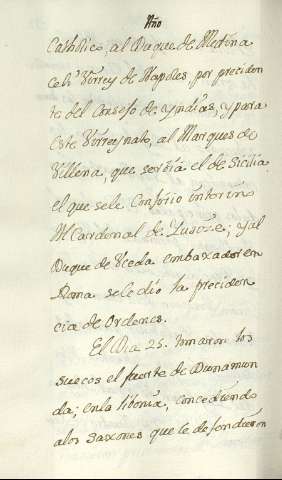 Año
Catholico, al Duque de Medina
Celi Virrey de Napoles por presiden
te del Consejo de yndias, y para
este Virreynato, al Marques de
Villena, que servia el de Sicilia
el que se le confirio interino
Al Cardenal de
Duque de Vceda embaxador en
Roma se le dio la presiden
cia de Ordenes.
El Dia 25. tomaron los
suecos el fuerte de Dunamun
da; en la libonia, concediendo
a los saxones que le defendieron